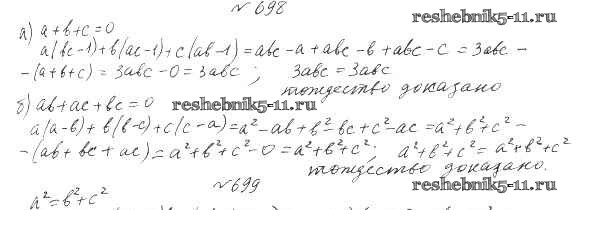 № 698
reshebnik5-11.ru
а) a+b+c=0
a(bc-1)+b(ac-1)+c(ab-1)=abc-a+abc-b+abc-c=3abc-
-(a+b+c)=3abc-0=3abc; 3abc=3abc
тождество доказано
б) ab+ac+bc=0 reshebnik5-11.ru
a(a-b)+b(b-c)+c(c-a)=a²-ab+b²-bc+c²-ac=a²+b²+c²-
-(ab+bc+ac)=a²+b²+c²-0=a²+b²+c²; a²+b²+c²=a²+b²+c²
тождество доказано.
№ 699
reshebnik5-11.ru
a²=b²+c²